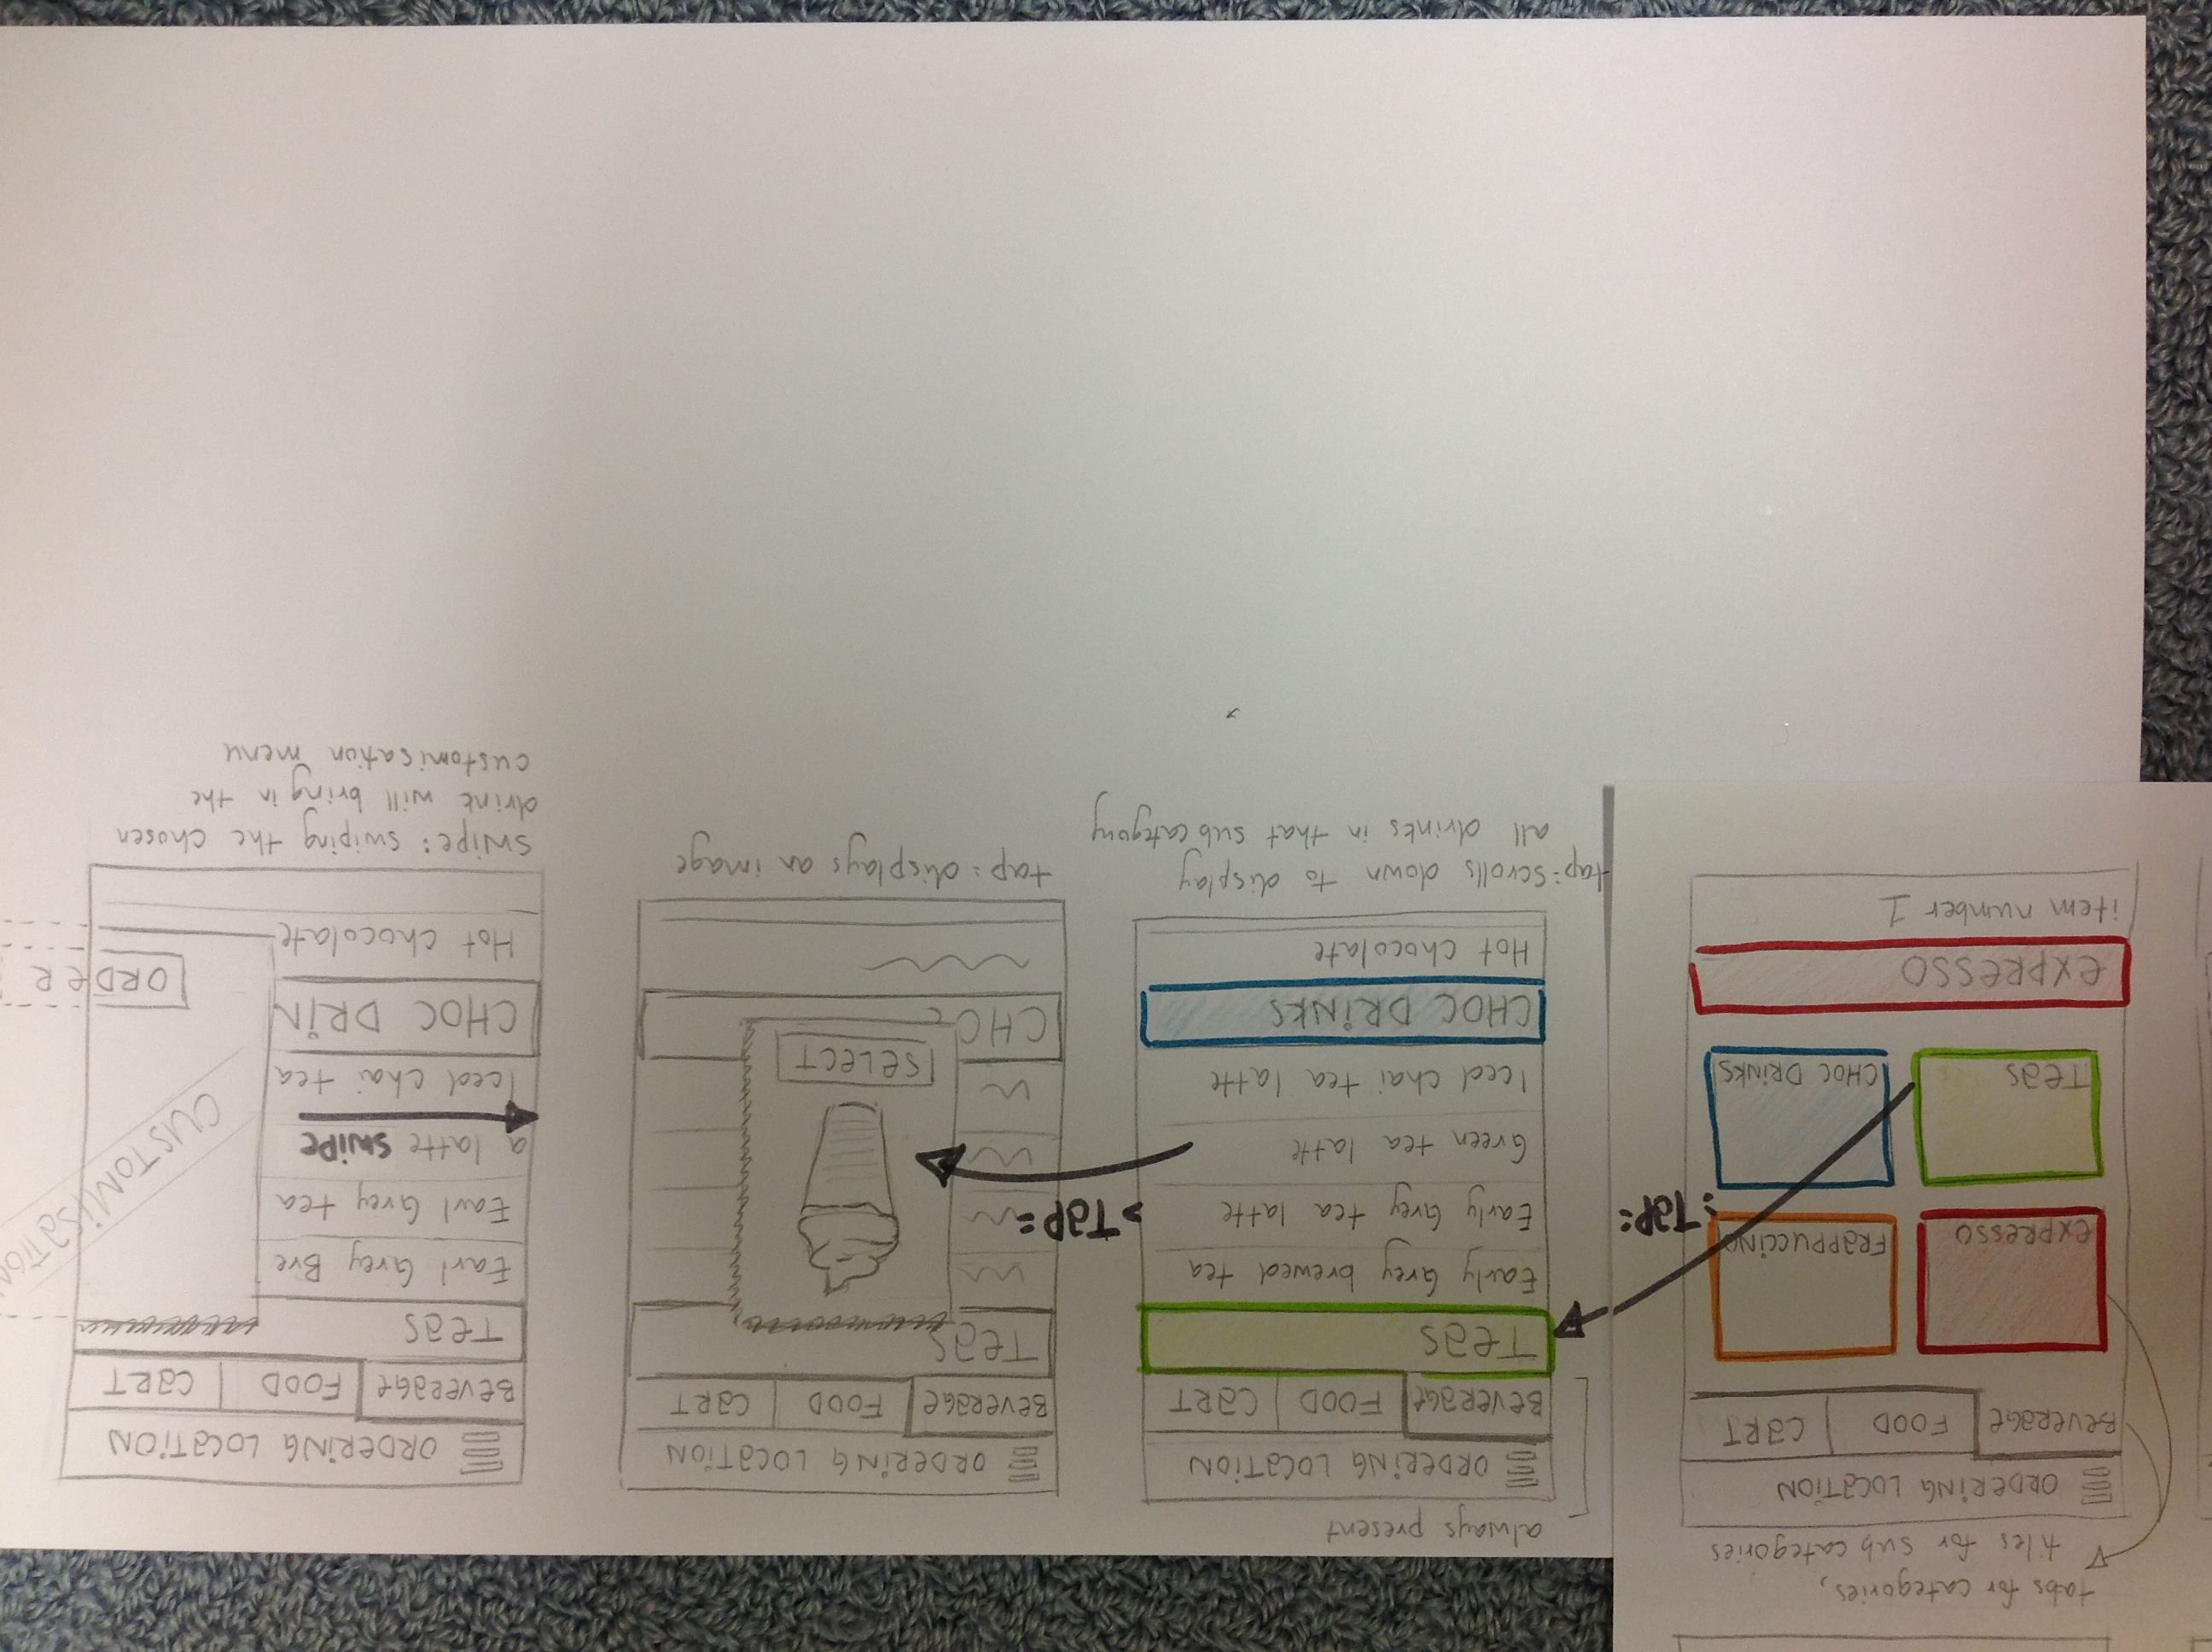 tabs for categories,
tiles for sub categories
ORDERING LOCATION
BEVERAGE FOOD CART
EXPRESSO
FRAPPUCCINO
TEAS
CHOC DRINKS
EXPRESSO
item number 1
:TAP:
always present
ORDERING LOCATION
BEVERAGE FOOD CART
TEAS
Early Grey brewed tea
Early Grey tea latte
Green tea latte
Iced chai tea latte
CHOC DRINKS
Hot chocolate
tap: scrolls down to display
all drinks in that sub category
>TAP=
ORDERING LOCATION
BEVERAGE FOOD CART
TEAS
SELECT
CHOC
tap: displays an image
ORDERING LOCATION
BEVERAGE FOOD CART
TEAS
Earl Grey Bre
Earl Grey tea
a latte SWIPE
Iced chai tea
CHOC DRIN
Hot chocolate
CUSTOMISATION
ORDER
swipe: swiping the chosen
drink will bring in the
customisation menu